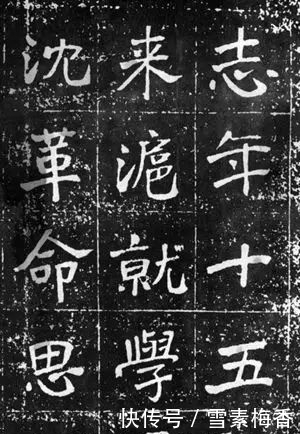 志年十五
来滬就學
沈革命思
快传号／雪素梅香